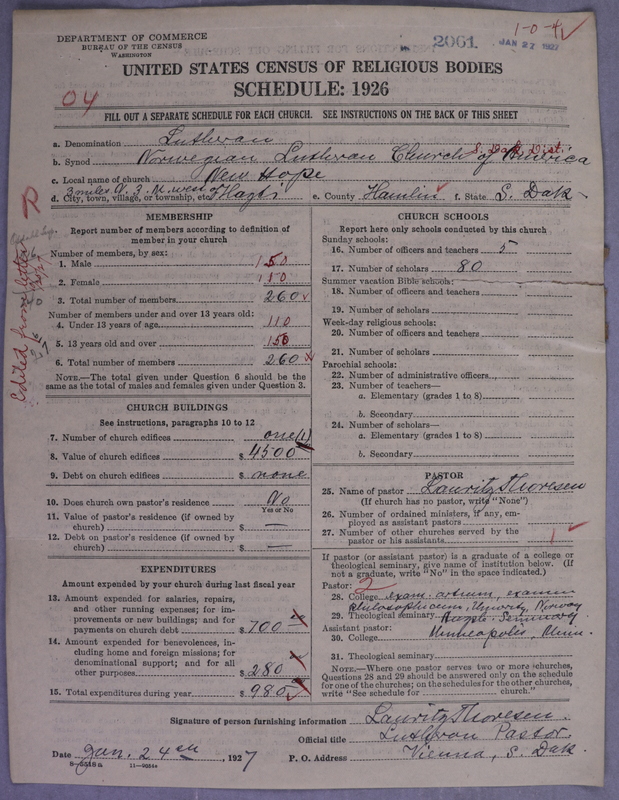 DEPARTMENT OF COMMERCE
BUREAU OF THE CENSUS
WASHINGTON
2061
JAN 27 1927
1-0-4
UNITED STATES CENSUS OF RELIGIOUS BODIES
SCHEDULE: 1926
04
FILL OUT A SEPARATE SCHEDULE FOR EACH CHURCH. SEE INSTRUCTIONS ON THE BACK OF THIS SHEET
a. Denomination Lutheran
S. Dak. Dist.
b. Synod Norwegian Lutheran Church of America
c. Local name of church New Hope
d. City, town, village, or township, etc. 3 miles N. 3 M. west of Hazti e. County Hamlin f. State S. Dak
Edited from letter
MEMBERSHIP
Report number of members according to definition of member in your church
Number of members, by sex:
1. Male 150
2. Female 110
3. Total number of members 260
Number of members under and over 13 years old:
4. Under 13 years of age 110
5. 13 years old and over 150
6. Total number of members 260
NOTE.—The total given under Question 6 should be the
same as the total of males and females given under Question 3.
CHURCH BUILDINGS
See instructions, paragraphs 10 to 12
7. Number of church edifices one (1)
8. Value of church edifices $ 4500
9. Debt on church edifices $ none
10. Does church own pastor's residence No
Yes or No
11. Value of pastor's residence (if owned by
church) $ —
12. Debt on pastor's residence (if owned by
church) $ —
EXPENDITURES
Amount expended by your church during last fiscal year
13. Amount expended for salaries, repairs,
and other running expenses; for im-
provements or new buildings; and for
payments on church debt $ 700
14. Amount expended for benevolences, in-
cluding home and foreign missions; for
denominational support; and for all
other purposes $ 280
15. Total expenditures during year $ 980
CHURCH SCHOOLS
Report here only schools conducted by this church
Sunday schools:
16. Number of officers and teachers 5
17. Number of scholars 80
Summer vacation Bible schools:
18. Number of officers and teachers
19. Number of scholars
Week-day religious schools:
20. Number of officers and teachers
21. Number of scholars
Parochial schools:
22. Number of administrative officers
23. Number of teachers—
a. Elementary (grades 1 to 8)
b. Secondary
24. Number of scholars—
a. Elementary (grades 1 to 8)
b. Secondary
PASTOR
25. Name of pastor Lauritz Thoresen
(If church has no pastor, write "None")
26. Number of ordained ministers, if any, em-
ployed as assistant pastors
27. Number of other churches served by the
pastor or his assistants 1
If pastor (or assistant pastor) is a graduate of a college or
theological seminary, give name of institution below. (If
not a graduate, write "No" in the space indicated.)
Pastor: 2
28. College exam. artium, examen
philosophicum, Norway
29. Theological seminary Seminary
Assistant pastor: Minneapolis, Minn.
30. College
31. Theological seminary
NOTE.—Where one pastor serves two or more churches,
Questions 28 and 29 should be answered only on the schedule
for one of the churches; on the schedules for the other churches,
write "See schedule for church."
Signature of person furnishing information Lauritz Thoresen.
Official title Lutheran Pastor
Date Jan. 24th, 1927 P. O. Address Vienna, S. Dak.
8—5518a 11—9054a